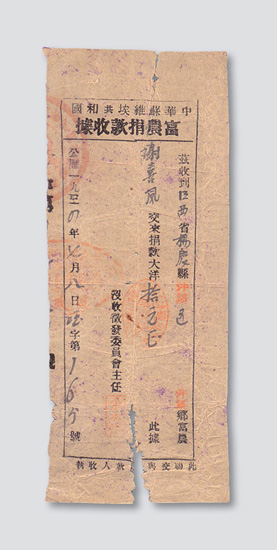 中華蘇維埃共和國
富農捐款收據
茲收到江西省楊殷縣 區 鄉富農
謝喜鳳交來捐款大洋拾 元正 此據
沒收徵發委員會主任
公曆一九三四年七月八日 字第165號
此聯交與 款人收執